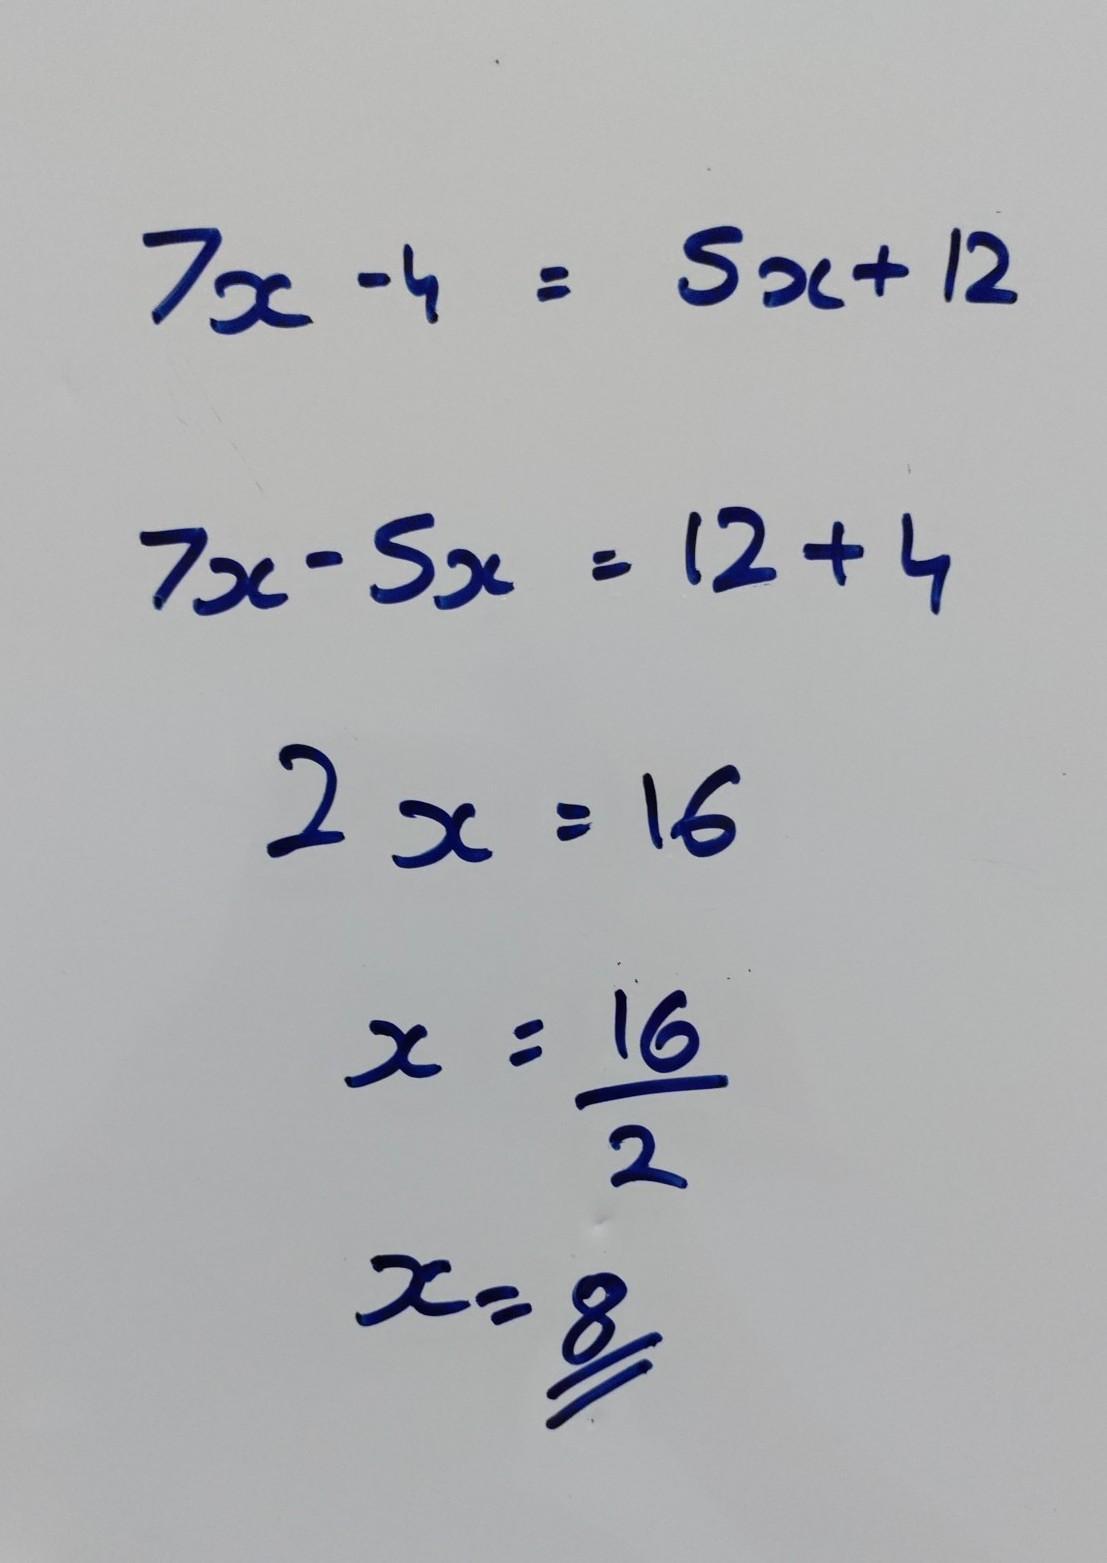 7x - 4 = 5x + 12
7x - 5x = 12 + 4
2x = 16
x = 16/2
x = 8